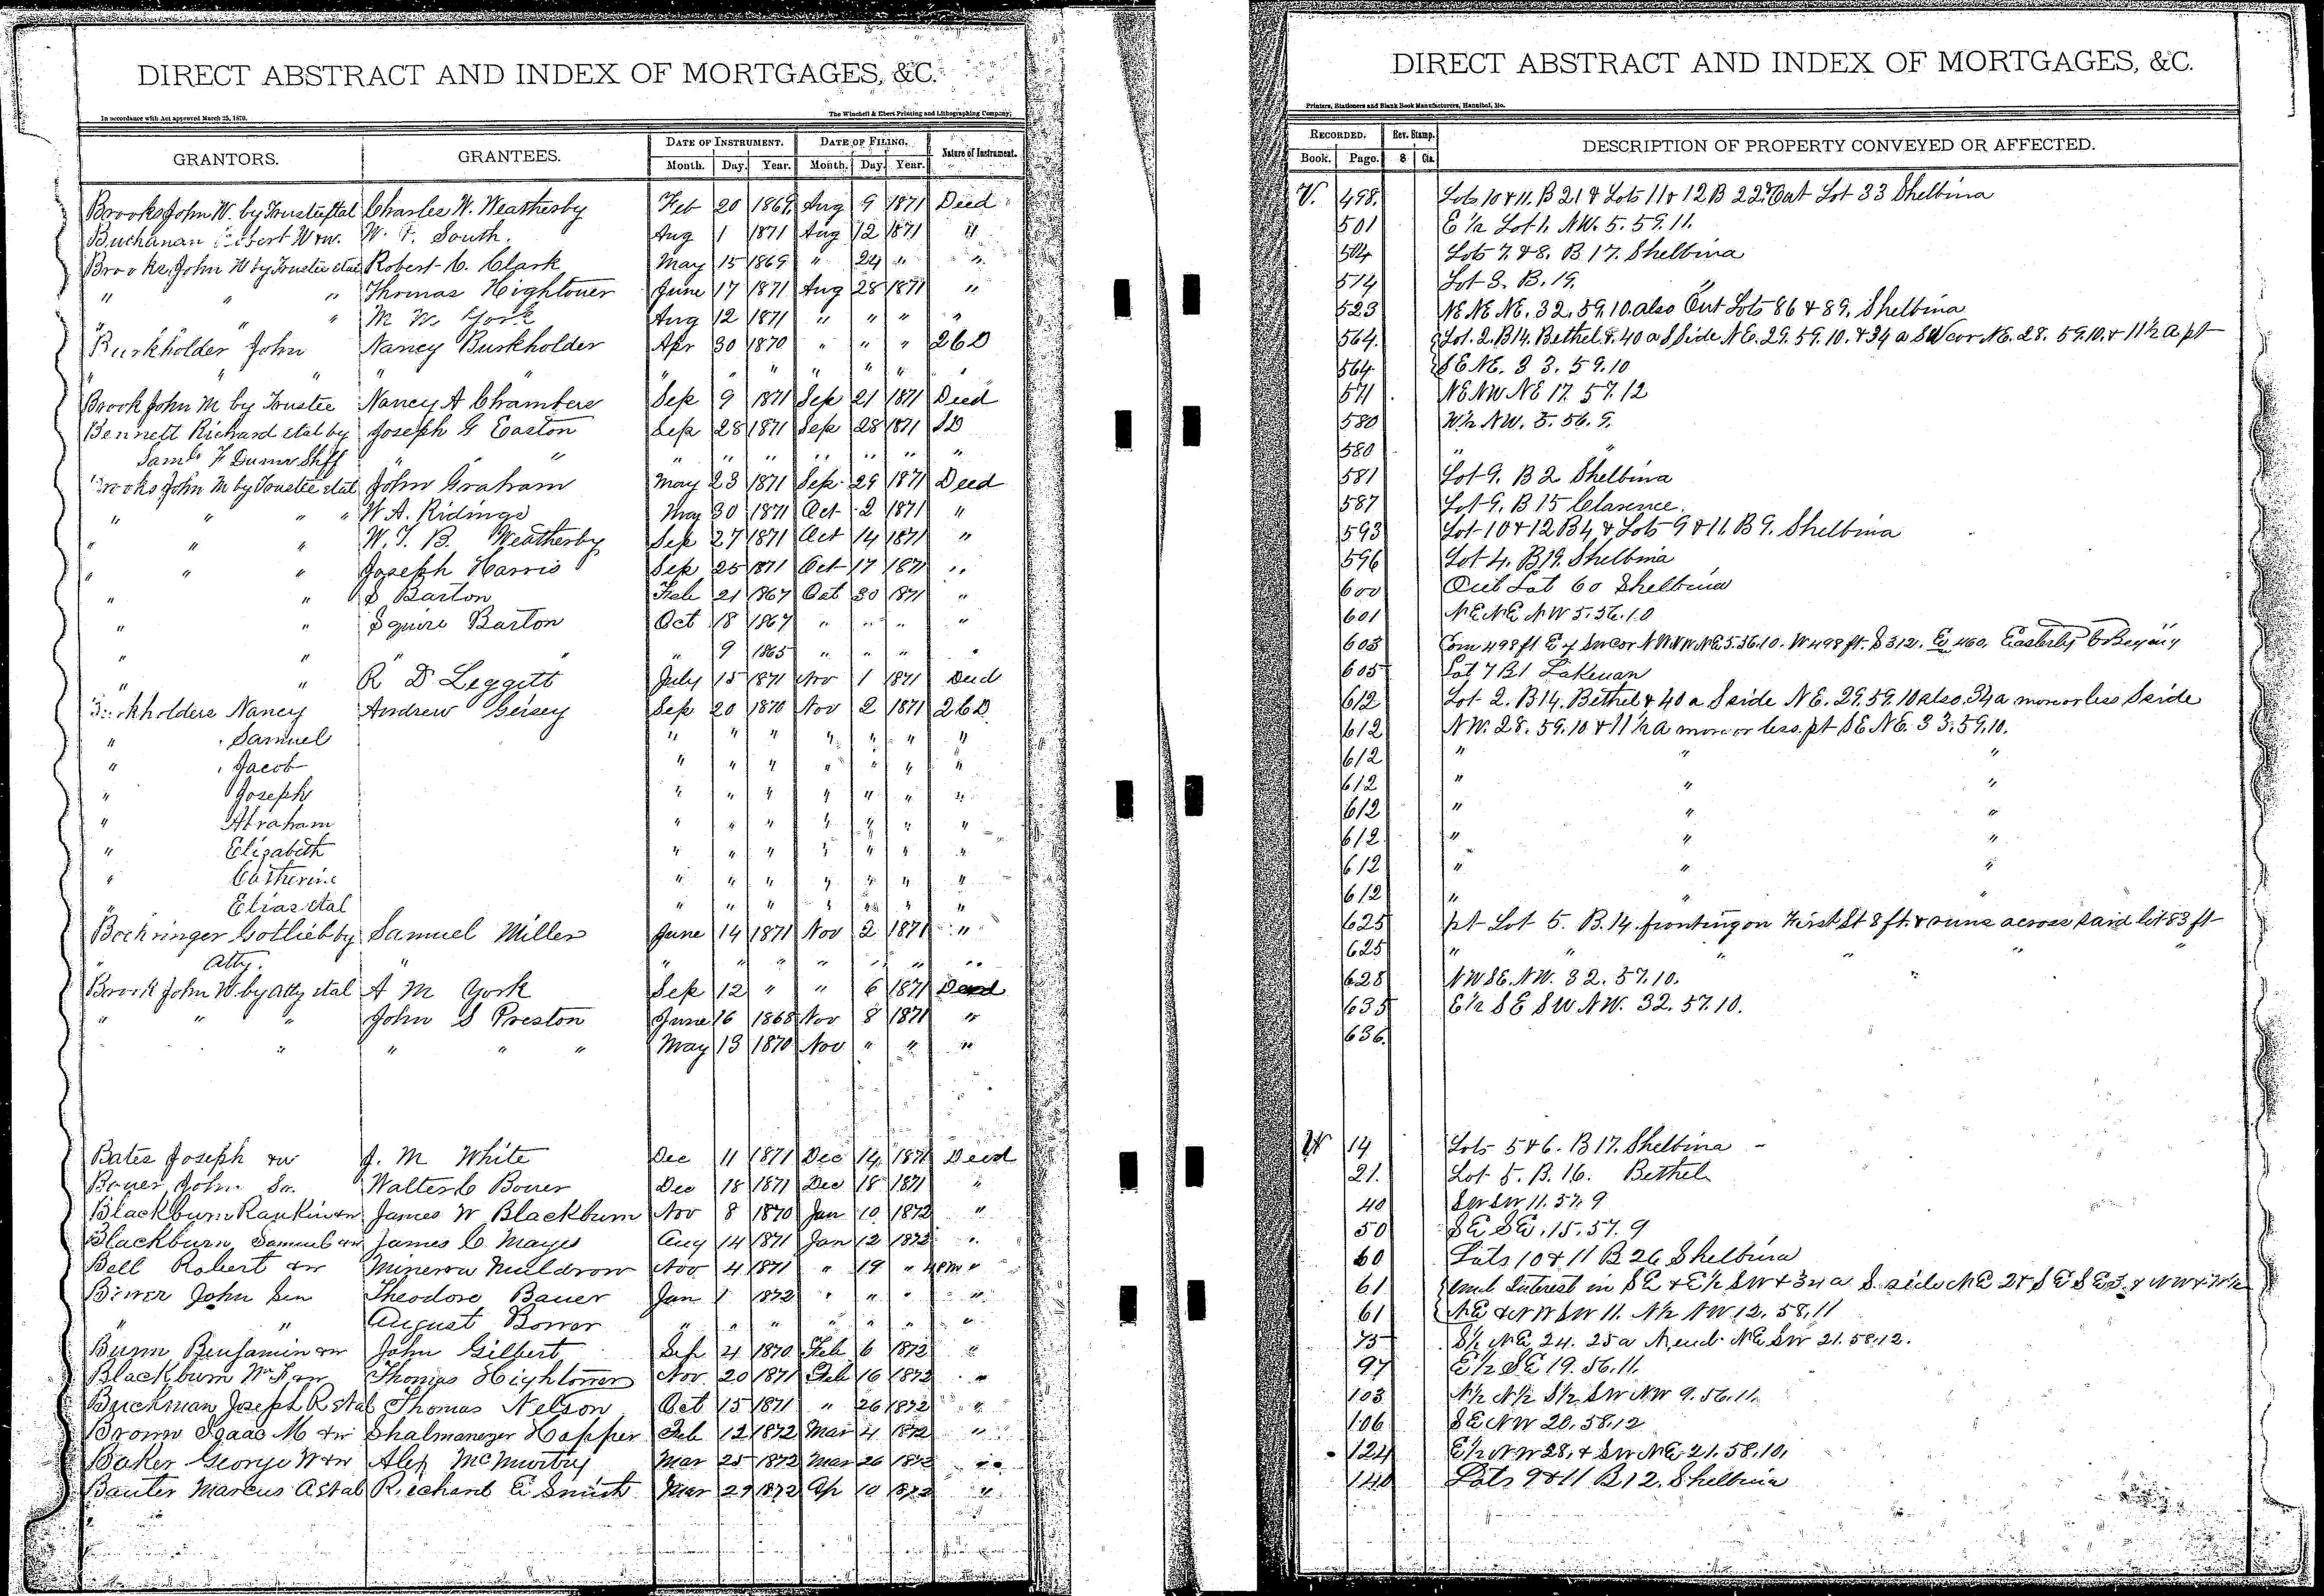 DIRECT ABSTRACT AND INDEX OF MORTGAGES, &C.
In accordance with Act approved March 25, 1870.
The Winchell & Ebert Printing and Lithographing Company,
GRANTORS. GRANTEES. DATE OF INSTRUMENT. DATE OF FILING. Nature of Instrument.
Month. Day. Year. Month. Day. Year.
Brooks John W. by Trustee etal Charles W. Weatherby Feb 20 1869 Aug 9 1871 Deed
Buchanan Robert W &w. W. F. South. Aug 1 1871 Aug 12 1871 "
Brooks, John W by Trustee etal Robert C. Clark May 15 1869 " 24 " "
" " " Thomas Hightower June 17 1871 Aug 28 1871 "
" " " M W. York Aug 12 1871 " " " "
Burkholder John Nancy Burkholder Apr 30 1870 " " " 26D
" " " " " " " " " "
Brook John M by Trustee Nancy A Chambers Sep 9 1871 Sep 21 1871 Deed
Bennett Richard etal by Joseph G Easton Sep 28 1871 Sep 28 1871 SD
Saml F Dunn Shff " " " " " " " " "
Brooks John M by Trustee etal John Graham May 23 1871 Sep 29 1871 Deed
" " " " W. A. Ridings May 30 1871 Oct 2 1871 "
" " " W. T. B. Weatherby Sep 27 1871 Oct 14 1871 "
" " " Joseph Harris Sep 25 1871 Oct 17 1871 "
" " S Barton Feb 21 1867 Oct 30 1871 "
" " Squire Barton Oct 18 1867 " " " "
" " " " " 9 1865 " " " "
" " R D Leggett July 15 1871 Nov 1 1871 Deed
Burkholders Nancy Andrew Geisey Sep 20 1870 Nov 2 1871 26D
" Samuel " " " " " " "
" Jacob " " " " " " "
" Joseph " " " " " " "
" Abraham " " " " " " "
" Elizabeth " " " " " " "
" Catherine " " " " " " "
" Elias etal " " " " " " "
Bochringer Gotlieb by Samuel Miller June 14 1871 Nov 2 1871 "
" Atty. " " " " " " " "
Brook John W. by atty etal A M York Sep 12 " " 6 1871 Deed
" " " John S Preston June 16 1868 Nov 8 1871 "
" " " " " May 13 1870 Nov " " "
Bates Joseph &w J. M White Dec 11 1871 Dec 14 1871 Deed
Bower John Sr. Walter C Bower Dec 18 1871 Dec 18 1871 "
Blackburn Rankin &w James W Blackburn Nov 8 1870 Jan 10 1872 "
Blackburn Samuel &w James C. Mayes Aug 14 1871 Jan 12 1872 "
Bell Robert &w Minerva Muldrow Nov 4 1871 " 19 " "
John Sen Theodore Bauer Jan 1 1872 " " " "
" " August " " " " " " "
Bunn Benjamin &w John Gilbert Sep 4 1870 Feb 6 1872 "
Blackburn Wm F &w Thomas Hightower Nov. 20 1871 Feb 16 1872 "
Buckman Joseph R etal Thomas Nelson Oct 15 1871 " 26 1872 "
Brown Isaac M &w Shalmanezer Happer Feb 12 1872 Mar 4 1872 "
Baker George W &w Alex McMurtry Mar 25 1872 Mar 26 1872 "
Marcus A etal Richard E Smith Mar 29 1872 Ap 10 1872 "
DIRECT ABSTRACT AND INDEX OF MORTGAGES, &C.
Printers, Stationers and Blank Book Manufacturers, Hannibal, Mo.
RECORDED. Rev. Stamp. DESCRIPTION OF PROPERTY CONVEYED OR AFFECTED.
Book. Page. $ Cts.
V. 498. Lots 10 & 11. B 21 & Lots 11 & 12 B 22. Out Lot 33 Shelbina
501 E ½ Lot 1. NW. 5. 59. 11.
504 Lots 7 & 8. B 17. Shelbina
514 Lot 3. B. 19. "
523 NE NE NE. 32. 59. 10. also Out Lots 86 & 89. Shelbina
564. Lot. 2. B14. Bethel & 40 a S Side NE. 29. 59. 10. & 34 a SW cor NE. 28. 59. 10. & 11½ a pt
564 SE NE. 33. 59. 10
571 NE NW NE 17. 57. 12
580 W½ NW. 5. 56. 9.
580 " "
581 Lot 9. B 2 Shelbina
587 Lot 9. B 15 Clarence.
593 Lot 10 & 12 B4 & Lots 9 & 11. B 9. Shelbina
596 Lot 4. B19. Shelbina
600 Out Lot 60 Shelbina
601 NE NE NW 5. 56. 10
603 Com 498 ft E of SW cor NW NW NE 5. 56. 10. W 498 ft. S 312. E 460. Easterly to Begining
605 Lot 7 B1 Lakenan
612 Lot 2. B14. Bethel & 40 a S side NE. 29. 59. 10 also 34 a more or less S side
612 NW. 28. 59. 10 & 11½ a more or less pt SE NE. 33. 59. 10.
612 " " "
612 " " "
612 " " "
612 " " "
612 " " "
612 " " "
625 pt Lot 5. B. 14. fronting on First St 8 ft. & runs across said lot 83 ft
625 " " " " " "
628 NW SE. NW. 32. 57. 10. "
635 E½ SE SW NW. 32. 57. 10.
636.
W 14 Lots 5 & 6. B 17. Shelbina
21. Lot 5. B. 16. Bethel
40 SW SW 11. 57. 9
50 SE SE. 15. 57. 9
60 Lots 10 & 11 B 26 Shelbina
61 Interest in SE & E½ SW & 34 a S. side NE 2 & SE SE 3. & NW & W½
61 NE & NW SW 11. N½ NW 12. 58. 11
75 S½ NE 24. 25 a N. end NE SW 21. 58. 12.
97 E½ SE 19. 56. 11.
103 N½ N½ S½ SW NW 9. 56. 11.
106 SE NW 20. 58. 12
124 E½ NW 28. & SW NE 21. 58. 10.
140 Lots 9 & 11 B 12. Shelbina